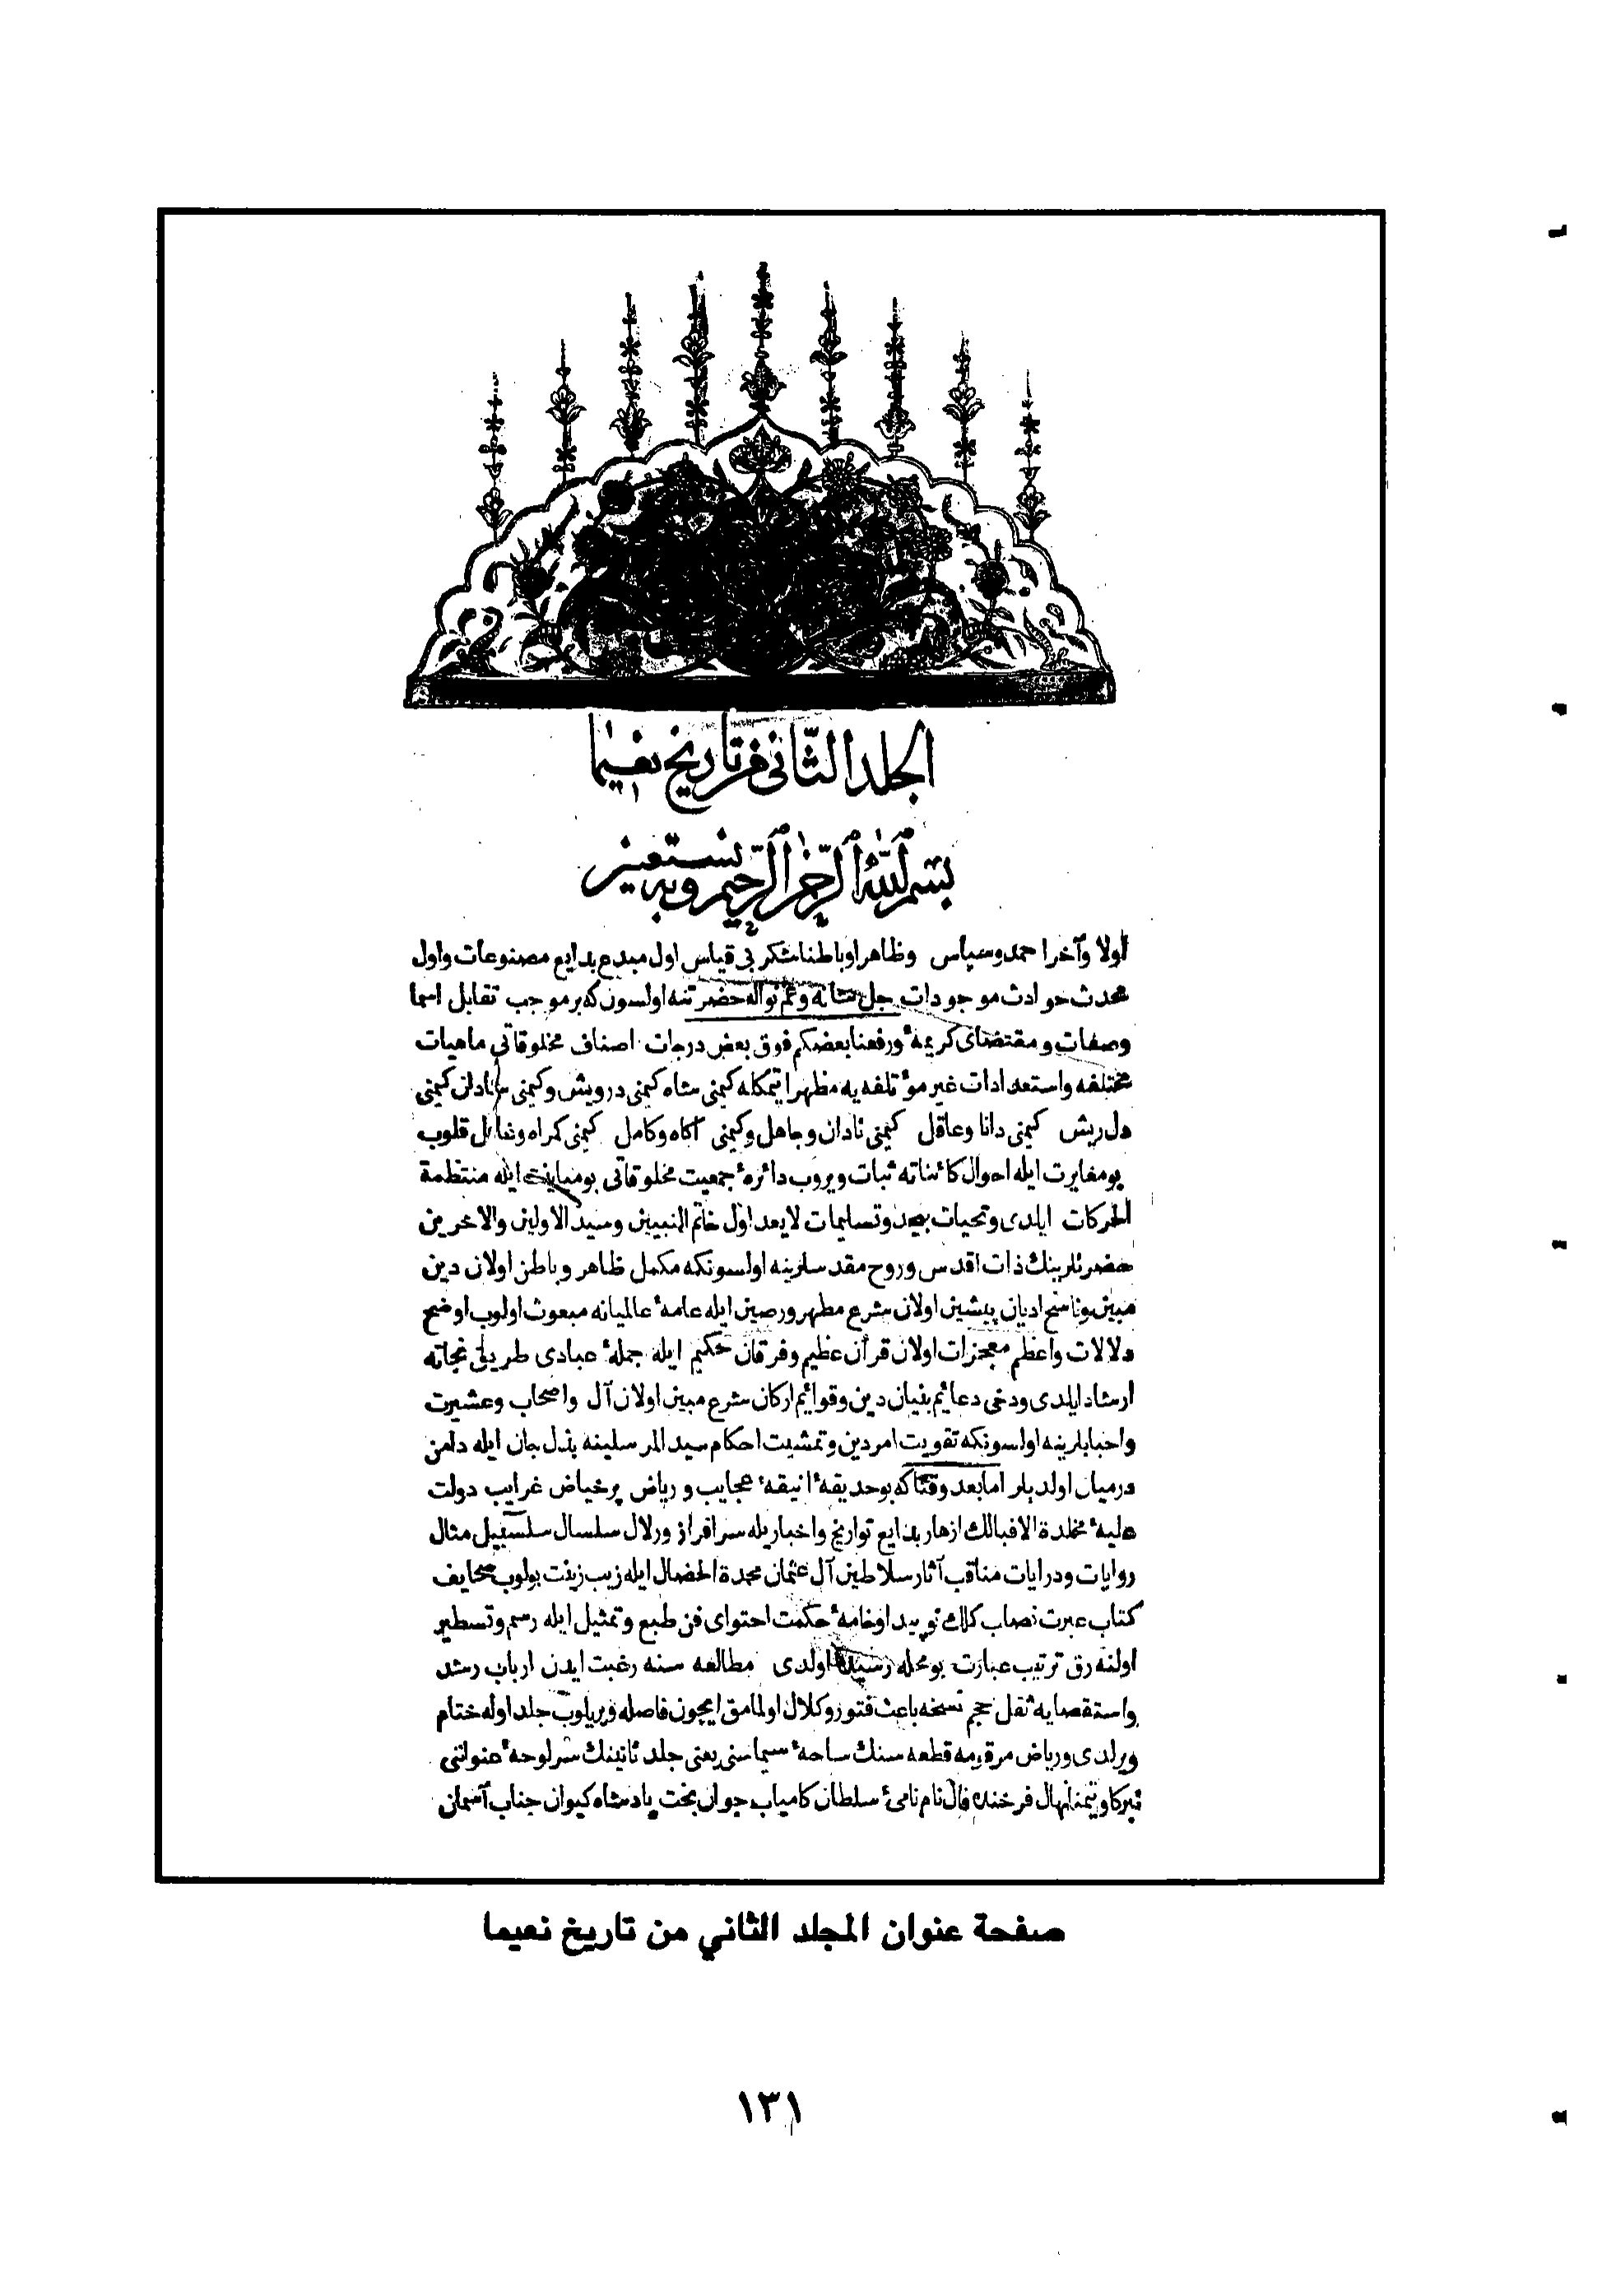 الجلد الثاني من تاريخ نعيما
بسم الله الرحمن الرحيم وبه نستعين
اولا وآخرا حمد وسپاس وظاهرا وباطنا شكر بی قیاس اول مبدع بدایع مصنوعات واول
محدث حوادث موجودات جل شانه وعم نواله حضرتنه اولسون كه بر موجب تقابل اسما
وصفات ومقتضای كریمهٔ ورفعنا بعضكم فوق بعض درجات اصناف مخلوقاتی ماهیات
مختلفه واستعدادات غیر مؤتلفه یه مظهر ایتمكله كیمنی شاه كیمنی درویش وكیمنی شادان كیمنی
دلریش كیمنی دانا وعاقل كیمنی نادان وجاهل وكیمنی آكاه وكامل كیمنی كمراه وغافل قلوب
بو مغایرت ایله احوال كائناته ثبات ویروب دائرهٔ جمعیت مخلوقاتی بو مباینت ایله منتظمة
الحركات ایلدی وتحیات بیحد وتسلیمات لا یعد اول خاتم النبیین وسید الاولین والاخرین
حضرتلرینك ذات اقدس وروح مقدسلرینه اولسونكه مكمل ظاهر وباطن اولان دین
مبین وناسخ ادیان پیشین اولان شرع مطهر ورصین ایله عامهٔ عالمیانه مبعوث اولوب اوضح
دلالات واعظم معجزات اولان قرآن عظیم وفرقان حكیم ایله جملهٔ عبادی طریق نجاته
ارشاد ایلدی ودخی دعائم بنیان دین وقوائم اركان شرع مبین اولان آل واصحاب وعشیرت
واحبابلرینه اولسونكه تقویت امر دین وتمشیت احكام سید المرسلینه بذل جان ایله دامن
درمیان اولدیلر اما بعد وقتاكه بو حدیقهٔ انیقهٔ عجایب وریاض پر خیاض غرایب دولت
علیهٔ مخلدة الاقبالك ازهار بدایع تواریخ واخباریله سرافراز وزلال سلسال سلسبیل مثال
روایات ودرایات مناقب آثار سلاطین آل عثمان محمدة الخصال ایله زیب زینت بولوب صحایف
كتاب عبرت نصاب كلك نو پیدا وخامهٔ حكمت احتوای فن طبع وتمثیل ایله رسم وتسطیر
اولنه رق ترتیب عبارت بو محله رسیده اولدی مطالعه سنه رغبت ایدن ارباب رشد
واستقصایه ثقل حجم نسخه باعث فتور وكلال اولمامق ایچون فاصله ویریلوب جلد اوله ختام
ویرلدی وریاض مرقومه قطعه سنك ساحهٔ سیماسنی یعنی جلد ثانینك سر لوحهٔ عنواننی
تبركا وتیمنا نهال فرخنده فال نام نامیٔ سلطان كامیاب جوان بخت پادشاه كیوان جناب آسمان
صفحة عنوان المجلد الثاني من تاريخ نعيما
١٣١